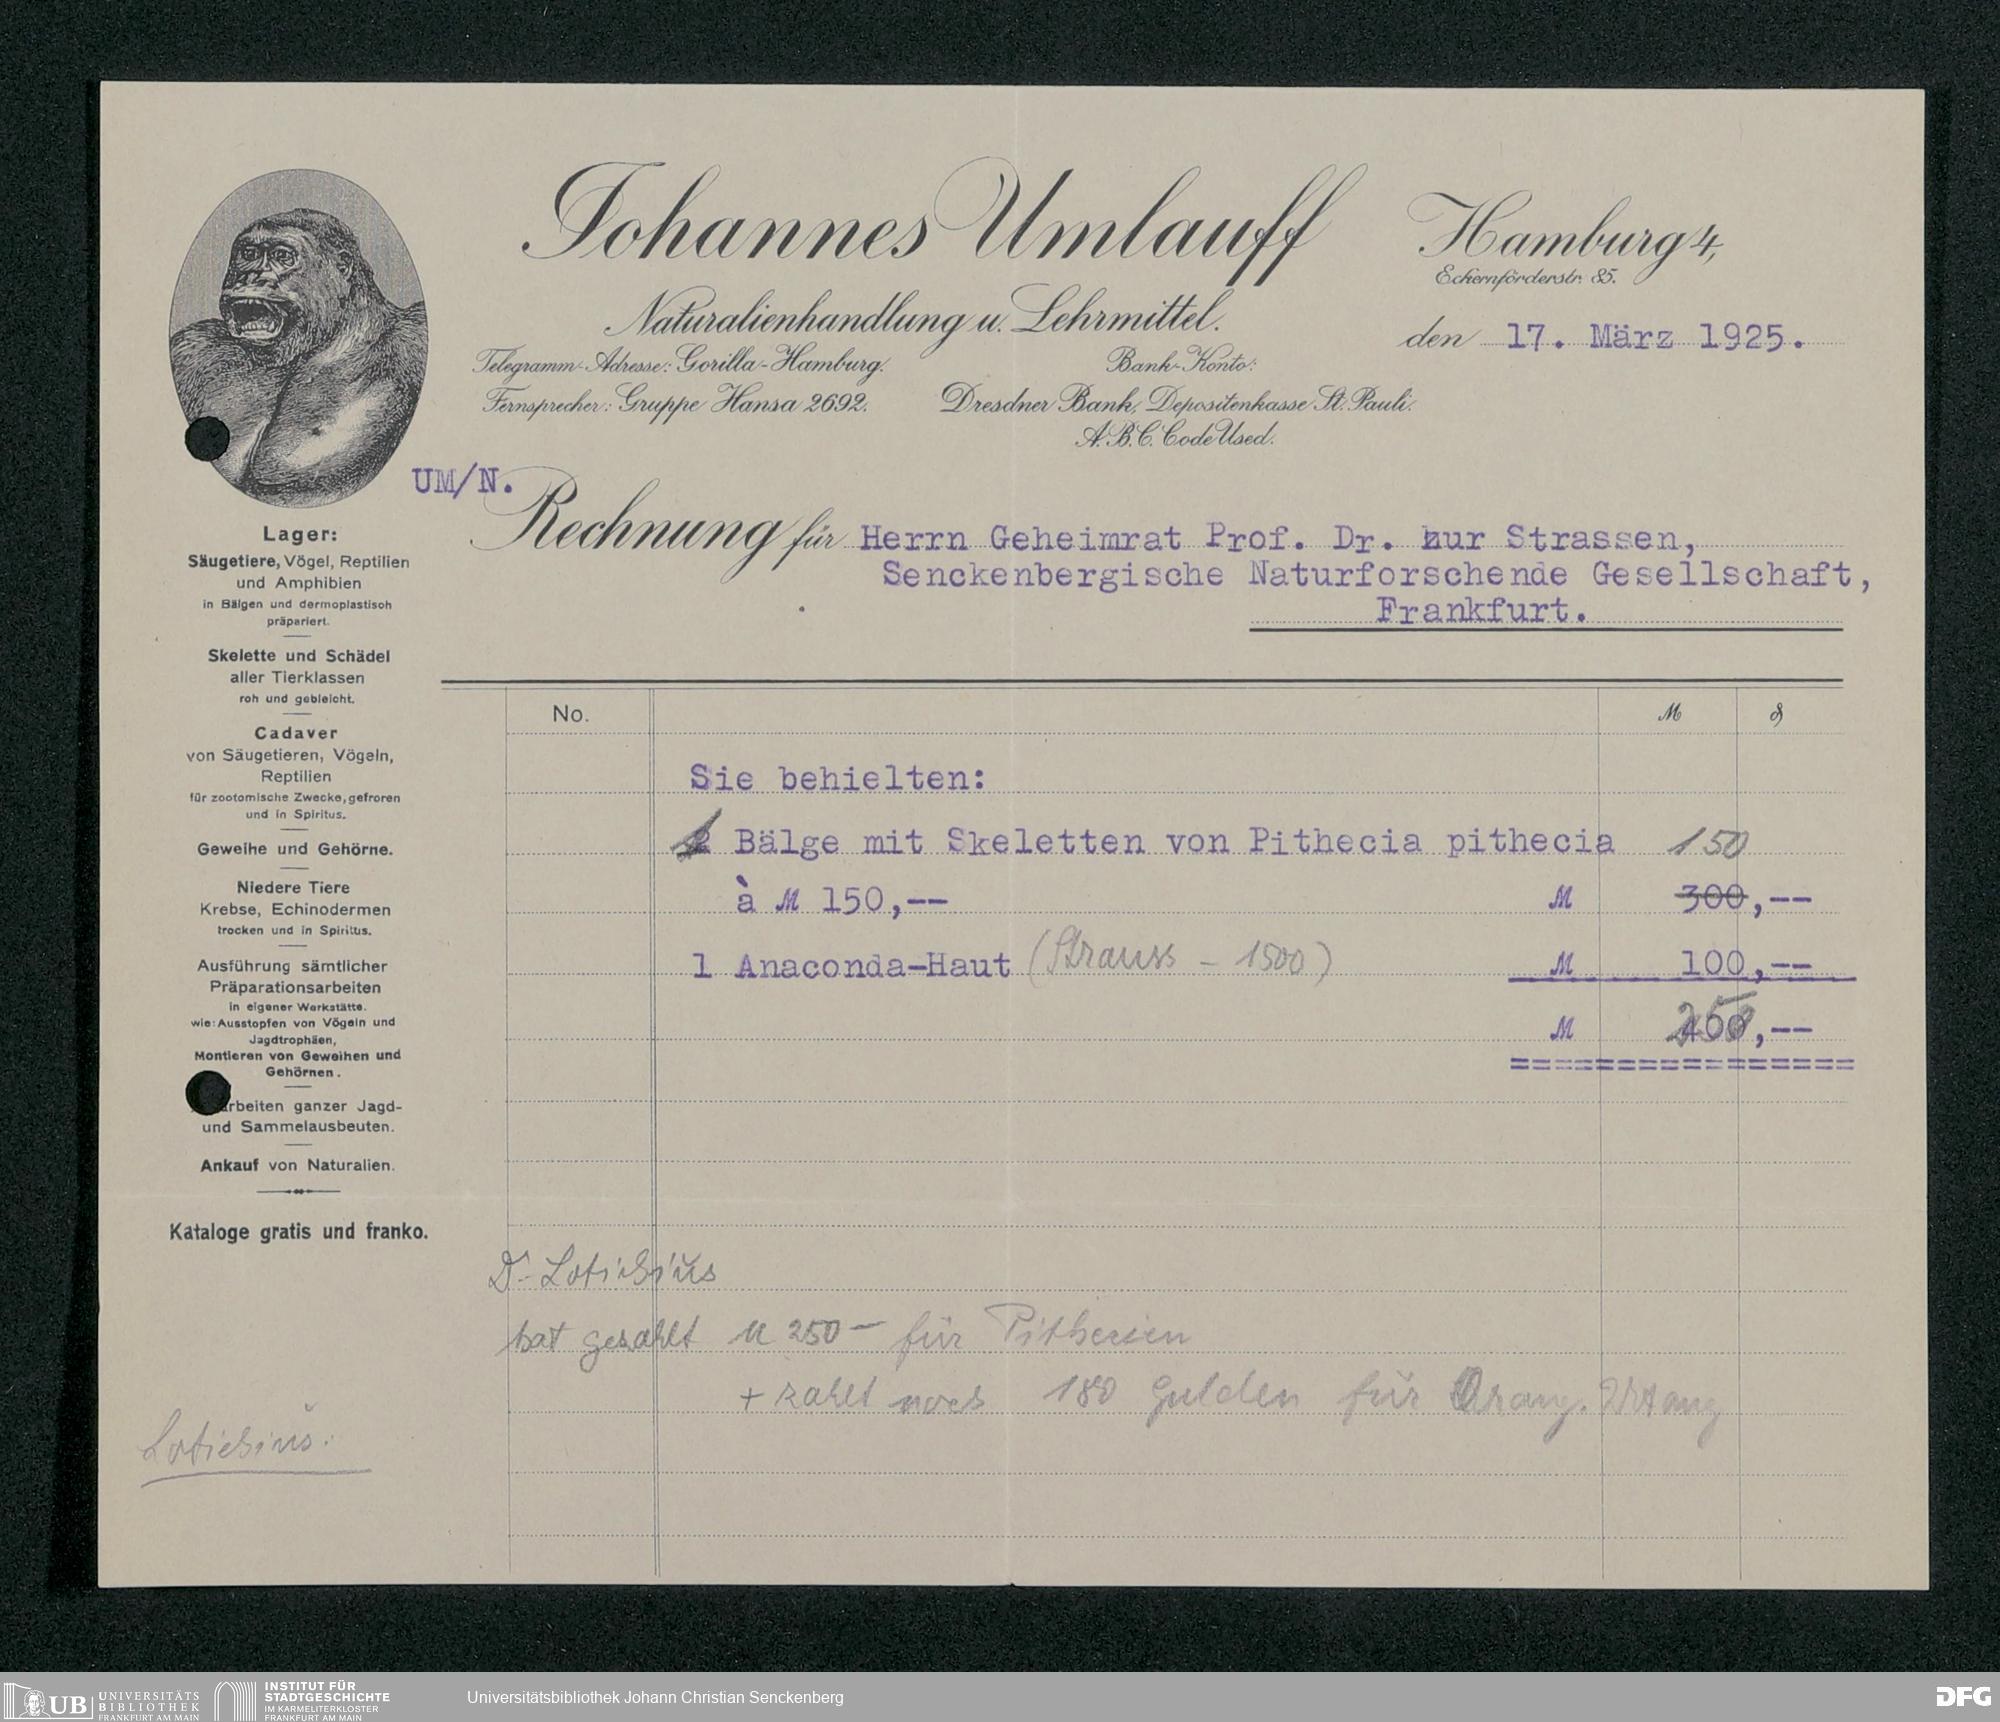 Johannes Umlauff
Hamburg 4,
Eckernförderstr. 85.
Naturalienhandlung u. Lehrmittel.
den 17. März 1925.
Telegramm-Adresse: Gorilla-Hamburg.
Fernsprecher: Gruppe Hansa 2692.
Bank-Konto:
Dresdner Bank, Depositenkasse St. Pauli.
A.B.C. Code Used.
UM/N.
Rechnung für Herrn Geheimrat Prof. Dr. zur Strassen,
Senckenbergische Naturforschende Gesellschaft,
Frankfurt.
Lager:
Säugetiere, Vögel, Reptilien
und Amphibien
in Bälgen und dermoplastisch
präpariert.
Skelette und Schädel
aller Tierklassen
roh und gebleicht.
Cadaver
von Säugetieren, Vögeln,
Reptilien
für zootomische Zwecke, gefroren
und in Spiritus.
Geweihe und Gehörne.
Niedere Tiere
Krebse, Echinodermen
trocken und in Spiritus.
Ausführung sämtlicher
Präparationsarbeiten
in eigener Werkstätte.
wie: Ausstopfen von Vögeln und
Jagdtrophäen,
Montieren von Geweihen und
Gehörnen.
arbeiten ganzer Jagd-
und Sammelausbeuten.
Ankauf von Naturalien.
Kataloge gratis und franko.
No. M ₰
Sie behielten:
1 Bälge mit Skeletten von Pithecia pithecia 150
à M 150,-- M 300,--
1 Anaconda-Haut (Strauss – 1500) M 100,--
M 250,--
Dr. Lotichius
hat gezahlt M 250 – für Pithecien
+ zahlt noch 180 Gulden für Orang. Utang
Lotichius.
UB UNIVERSITÄTS
BIBLIOTHEK
FRANKFURT AM MAIN
INSTITUT FÜR
STADTGESCHICHTE
IM KARMELITERKLOSTER
FRANKFURT AM MAIN
Universitätsbibliothek Johann Christian Senckenberg
DFG